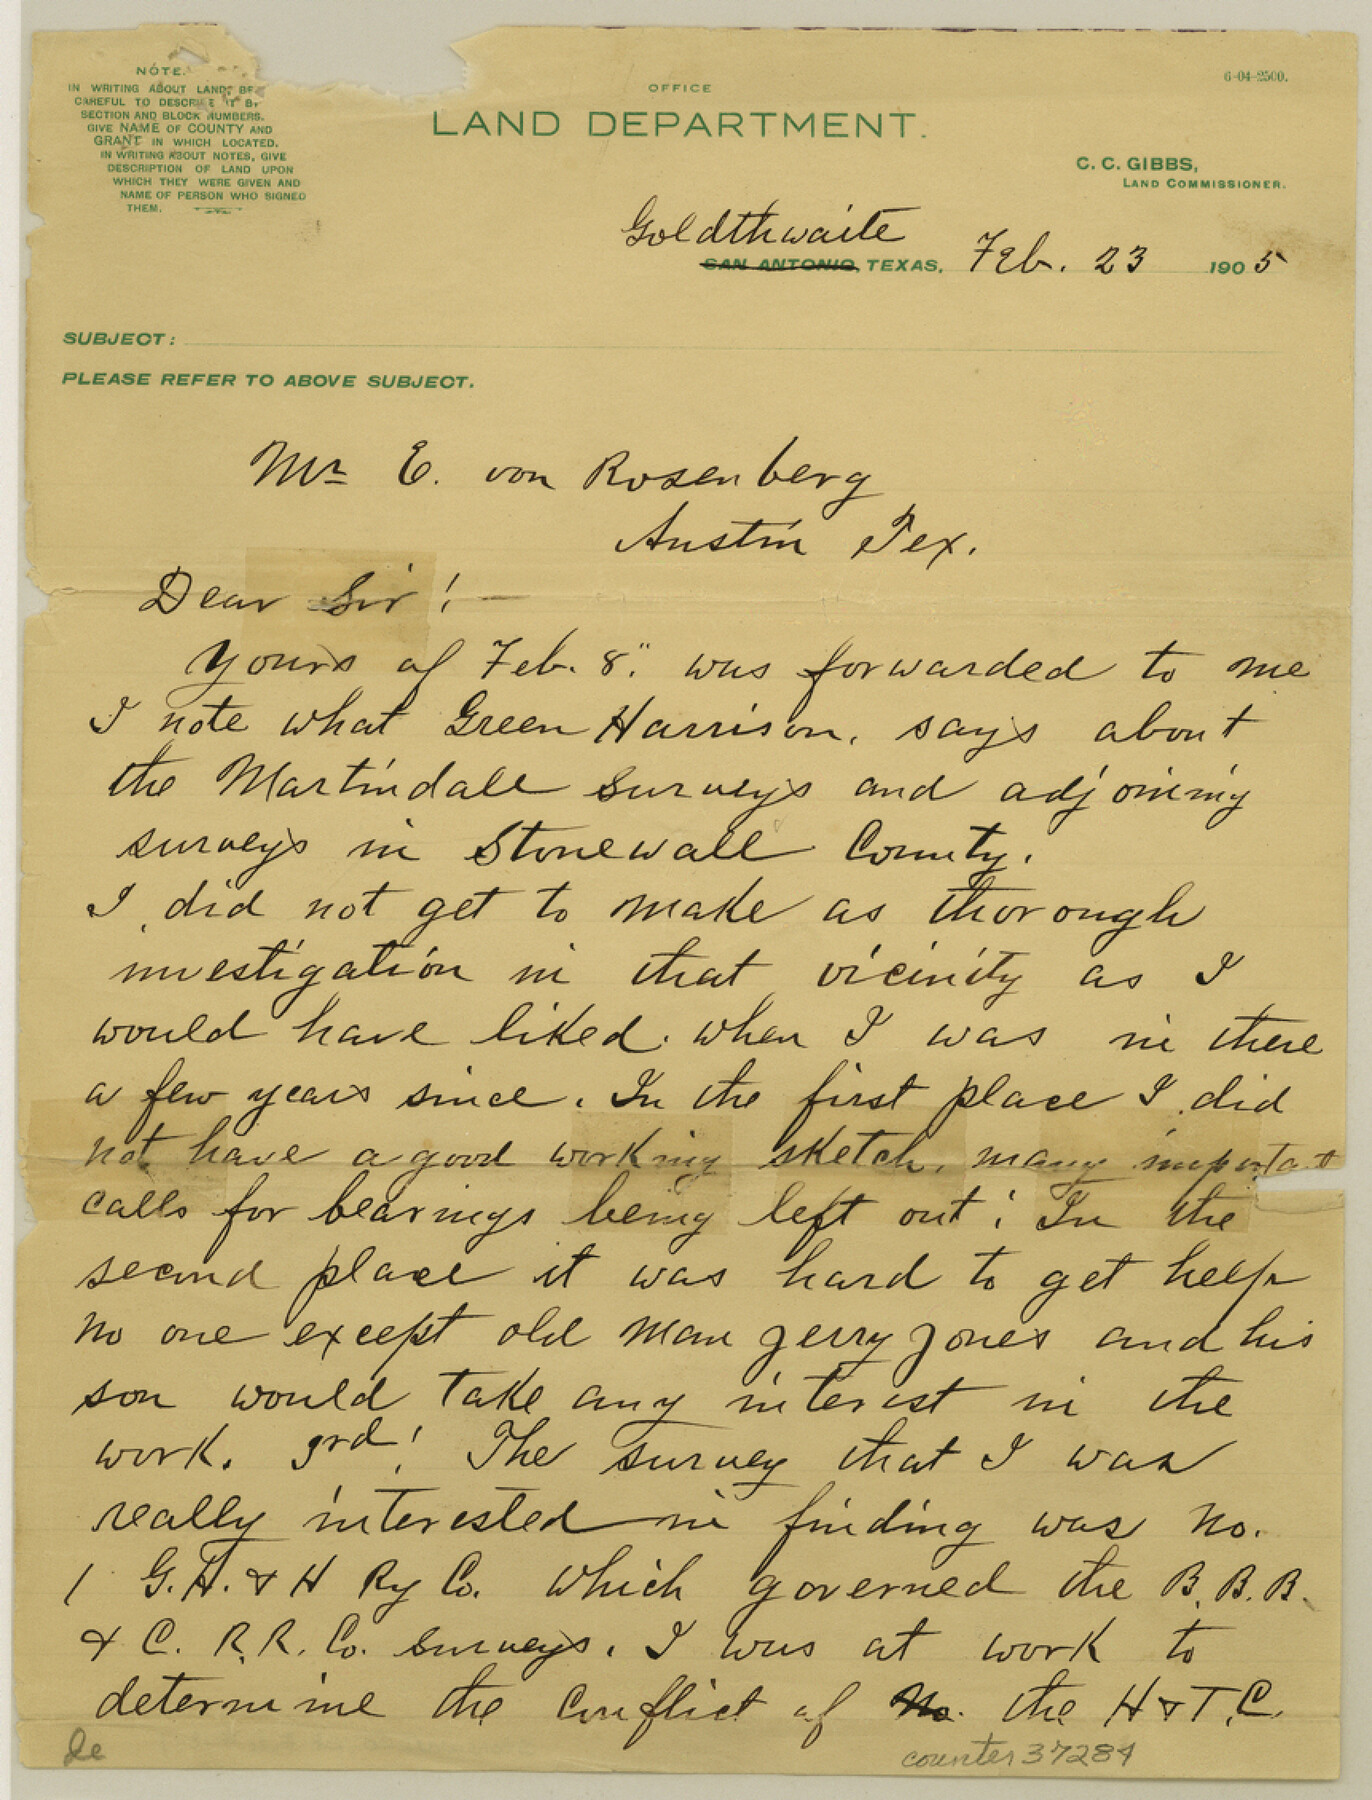 NOTE.
IN WRITING ABOUT LANDS BE
CAREFUL TO DESCRIBE IT BY
SECTION AND BLOCK NUMBERS.
GIVE NAME OF COUNTY AND
GRANT IN WHICH LOCATED.
IN WRITING ABOUT NOTES, GIVE
DESCRIPTION OF LAND UPON
WHICH THEY WERE GIVEN AND
NAME OF PERSON WHO SIGNED
THEM.
6-04-2500.
OFFICE
LAND DEPARTMENT.
C. C. GIBBS,
LAND COMMISSIONER.
Goldthwaite
SAN ANTONIO, TEXAS, Feb. 23 1905
SUBJECT:
PLEASE REFER TO ABOVE SUBJECT.
Mr E. von Rosenberg
Austin Tex.
Dear Sir! —
Yours of Feb. 8". was forwarded to me
I note what Green Harrison. says about
the Martindall surveys and adjoining
surveys in Stonewall County.
I did not get to make as thorough
investigation in that vicinity as I
would have liked. when I was in there
a few years since. In the first place I did
not have a good working sketch, many important
calls for bearings being left out; In the
second place it was hard to get help
no one except old man Jerry Jones and his
son would take any interest in the
work. 3rd! The survey that I was
really interested in finding was No.
1 G.H. & H Ry Co. which governed the B.B.B.
& C. R.R. Co. surveys. I was at work to
determine the conflict of No. the H & T.C.
de
counter 37284